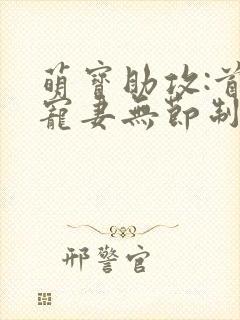 萌寶助攻:首
寵妻無節制
邢警官